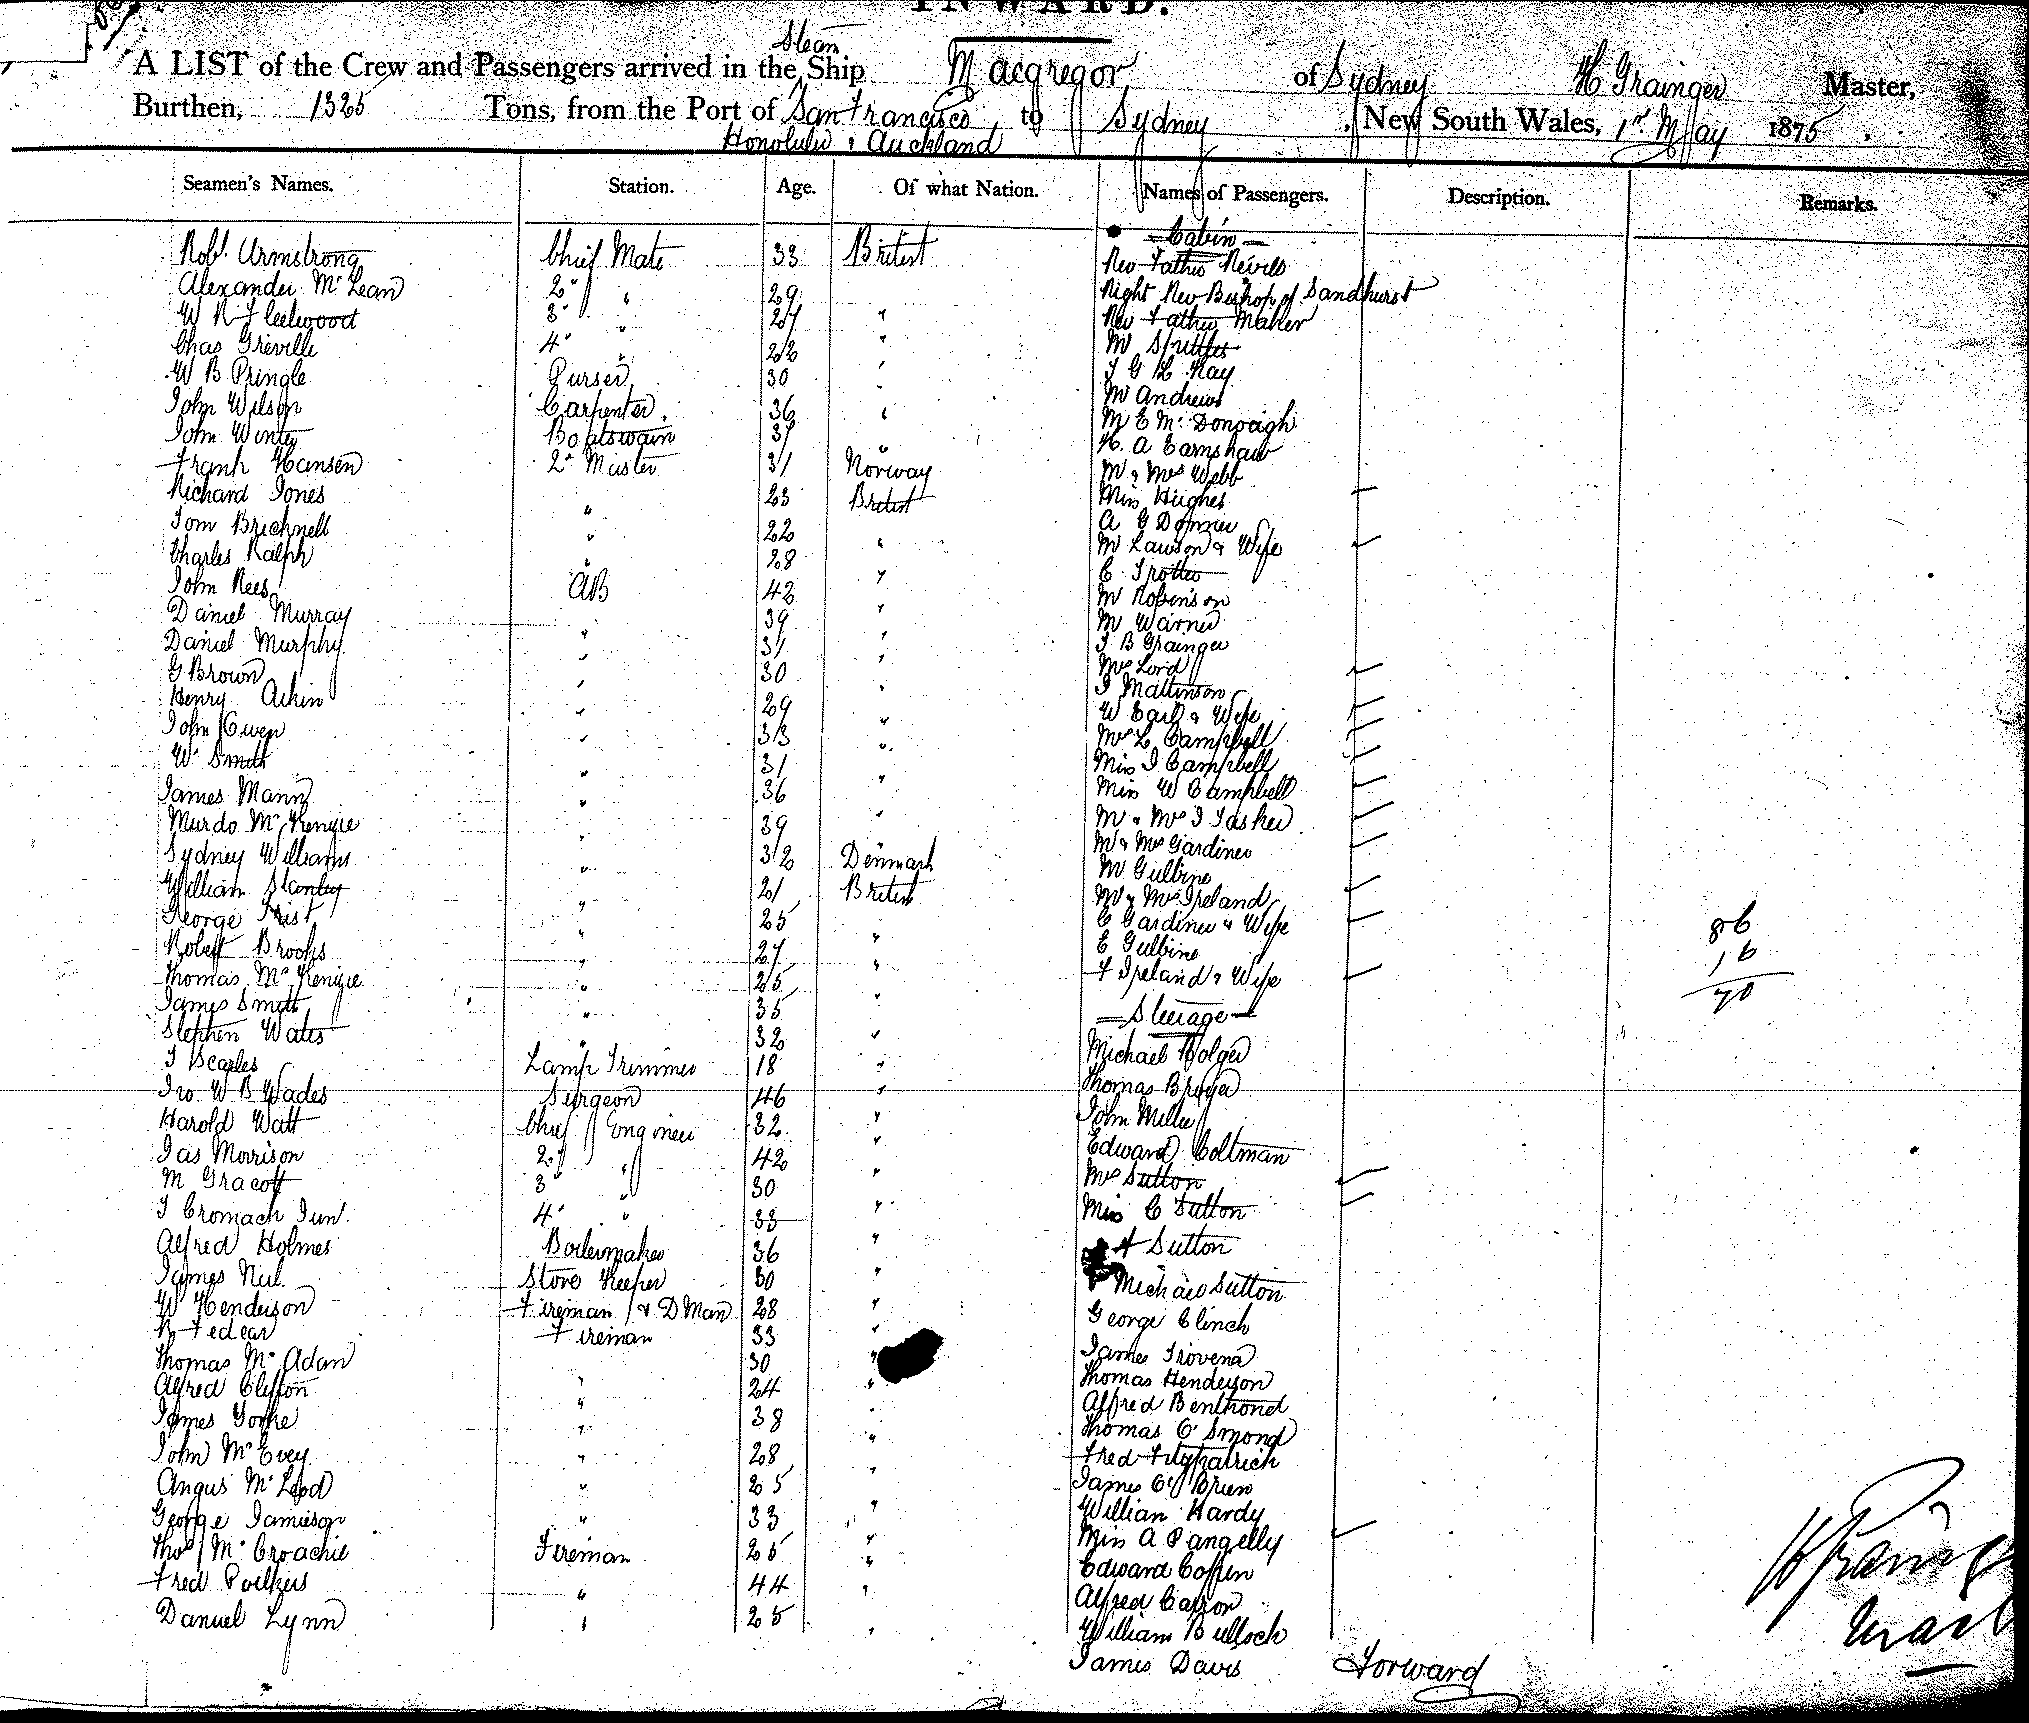 INWARD.
Steam
A LIST of the Crew and Passengers arrived in the Ship Macgregor of Sydney H Grainger Master,
Burthen, 1325 Tons, from the Port of San Francisco to Sydney, New South Wales, 1st May 1875.
Honolulu & Auckland
Seamen's Names. Station. Age. Of what Nation. Names of Passengers. Description. Remarks.
Cabin
Robt. Armstrong Chief Mate 33 British Rev Father Nevils
Alexander McLean 2d " 29 Right Rev Bishop of Sandhurst
W R Fleetwood 3d " 27 " Rev Father Maher
Chas Greville 4th " 22 " Mr Spittles
W B Pringle Purser 30 " J G L Kay
John Wilson Carpenter. 36 " Mr Andrews
John Winter Boatswain 37 " M E McDonough
Frank Hansen 2r Master 31 Norway H. A Earnshaw
Mr & Mrs Webb
Richard Jones " 23 British Miss Hughes
Tom Bricknell " 22 " A G
Charles Ralph " 28 " Mr Lawson & Wife
John Rees AB 42 " C Trotter
Mr Robinson
Daniel Murray " 39 " Mr Warner
Daniel Murphy " 31 " J B Grainger
G Brown " 30 " Mrs Lord
Henry Aikin " 29 " J Mattinson
John Owen " 33 " W Earl & Wife
Mrs L Campbell
Wm Smith " 31 " Miss J Campbell
James Mann " 36 " Miss W Campbell
Murdo McKenzie " 39 " Mr & Mrs J Tasker
Sydney Williams " 32 Denmark Mr & Mrs Gardiner
Mr Gulbine
William Stanley " 21 British Mr & Mrs Ireland
George Trist " 25 " C Gardiner & Wife
Robert Brooks " 27 " E Gulbine
86
16
70
Thomas McKenzie " 25 " F Ireland & Wife
James Smith " 35 " Steerage
Stephen Wates " 32 " Michael Bolger
J Searles Lamp Trimmer 18 " Thomas
Jno. W B Wades Surgeon 46 " John Miller
Harold Watt Chief Engineer 32 " Edward Coltman
Jas Morrison 2d " 42 " Mrs Sutton
M Gracott 3 " 30 " Miss C Sutton
J Cromach Jun. 4th " 33 "
Alfred Holmes Boilermaker 36 " A Sutton
James Neil Store Keeper 30 " Michael Sutton
W Henderson Fireman & D Man 28 " George Clinch
R Fedear Fireman 33 "
Thomas McAdam 30 " James Trovena
Alfred Clifton " 24 " Thomas Henderson
Alfred Benthond
James Yorke " 38 " Thomas O'Smond
John McEvey " 28 " Fred Fitzpatrick
Angus McLeod " 25 " James O'Brien
George Jamieson " 33 " William Hardy
Miss A Pangelly
Thos McCroachie Fireman 25 " Edward Coffen
Fred Poilkus " 44 " Alfred Carron
Daniel Lynn " 25 " William Bulloch
James Davis Forward
H Grainger
Master